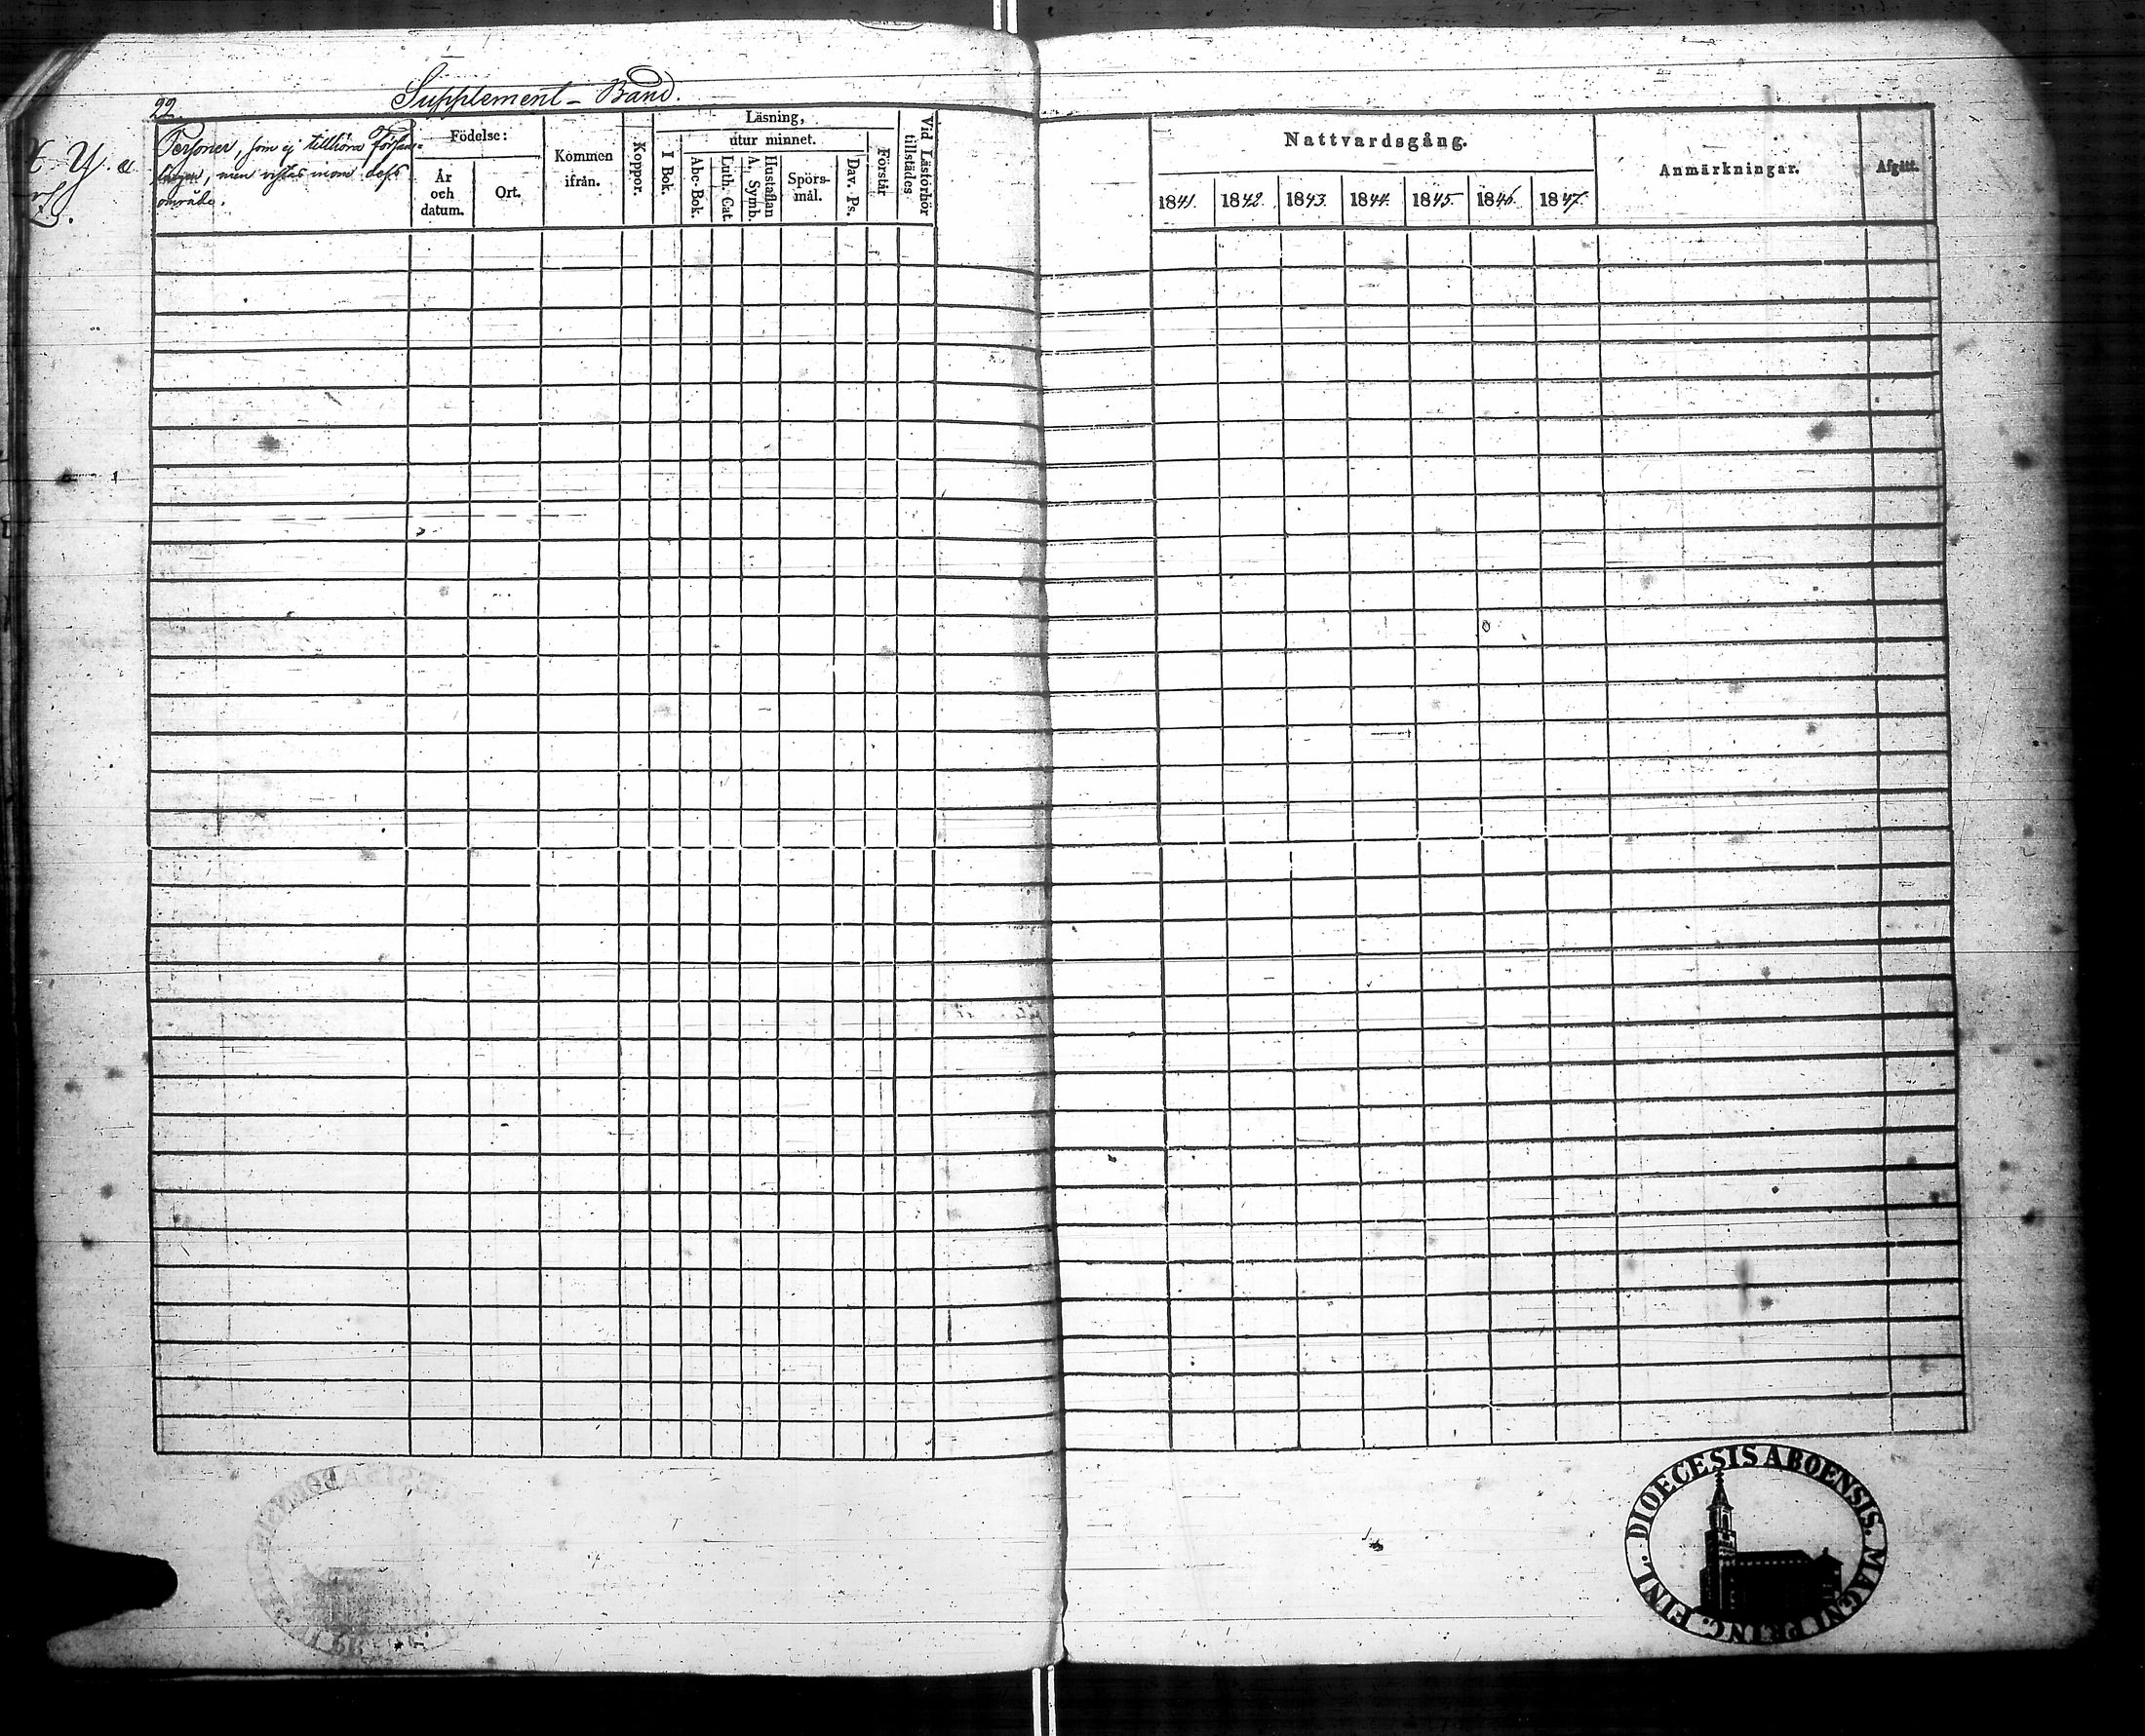 22.
Supplement-Band.
Personer, som ej tillhöra Försam-
lingen, men vistas inom dess
område.
Födelse:
År
och
datum.
Ort.
Kommen
ifrån.
Koppor.
Läsning,
utur minnet.
I Bok.
Abc-Bok.
Luth. Cat.
Hustaflan
A. Symb.
Spörs-
mål.
Dav. Ps.
Förstår
Vid Läsförhör
tillstädes
Nattvardsgång.
1841.
1842.
1843.
1844.
1845.
1846.
1847.
Anmärkningar.
Afgått.
DIOECESIS ABOENSIS. MAGNI PRINC. FINL.